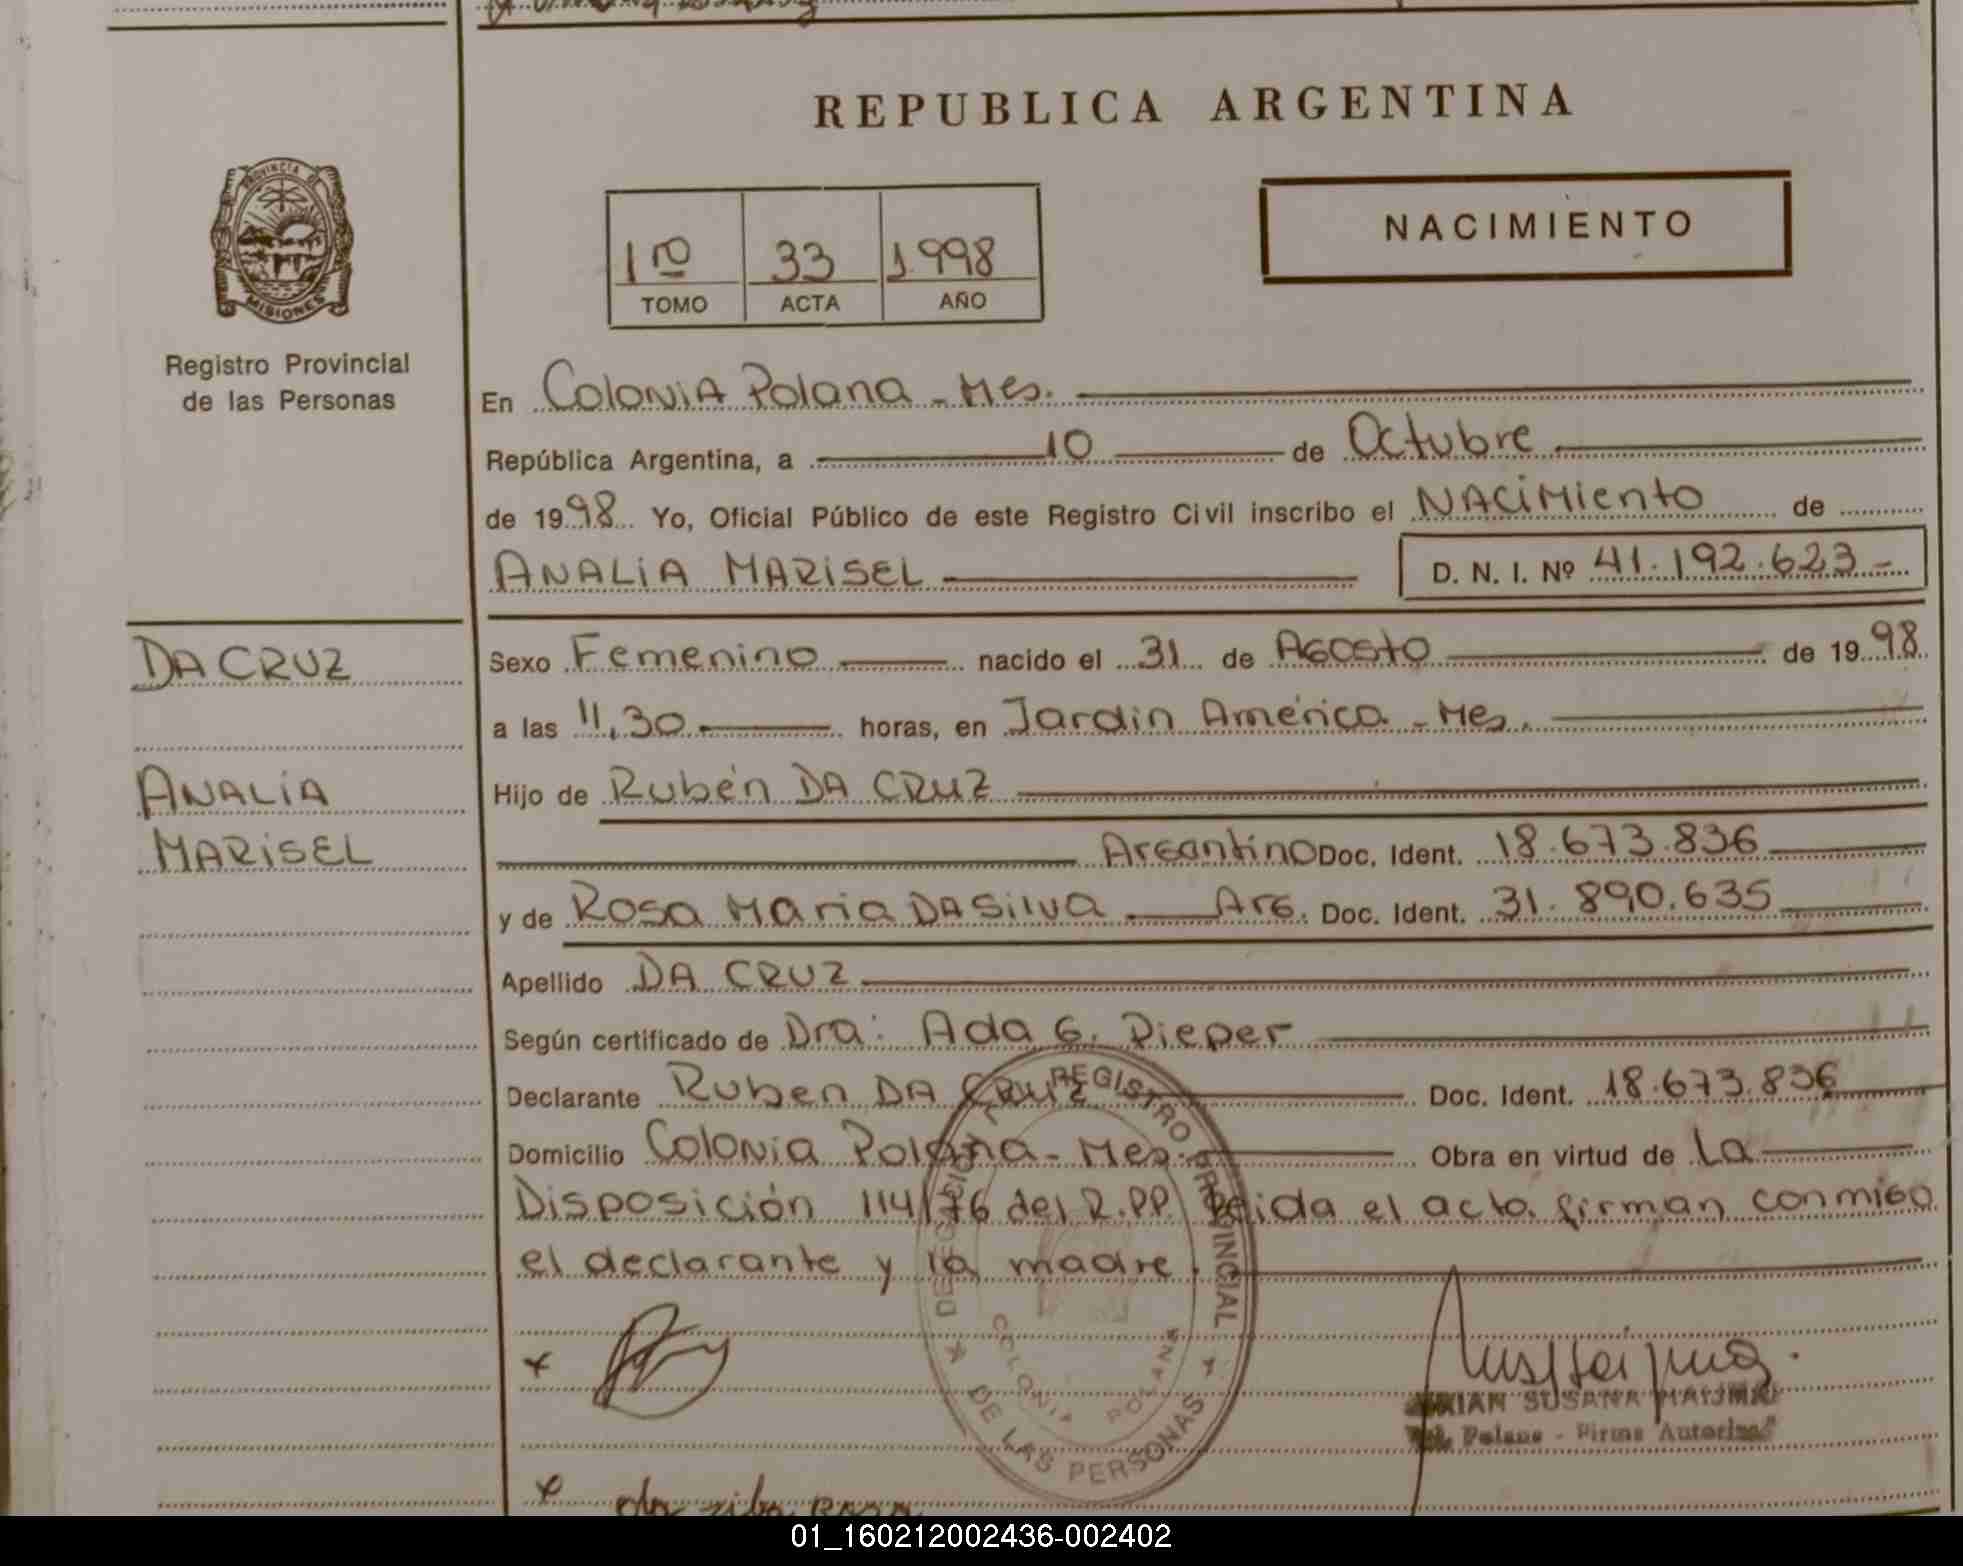 REPUBLICA ARGENTINA
PROVINCIA DE
MISIONES
Registro Provincial
de las Personas
1ro 33 1998
TOMO ACTA AÑO
NACIMIENTO
En Colonia Polana - Mes.
República Argentina, a 10 de Octubre
de 1998 Yo, Oficial Público de este Registro Civil inscribo el NACiMiento de
ANALiA MARiSEL D. N. I. Nº 41.192.623-
DA CRUZ
ANALiA
MARiSEL
Sexo Femenino nacido el 31 de Agosto de 1998
a las 11,30 horas, en Jardin América - Mes.
Hijo de Rubén DA CRUZ
Argentino Doc. Ident. 18.673.836
y de Rosa Maria DA Silva Arg. Doc. Ident. 31.890.635
Apellido DA CRUZ
Según certificado de Dra: Ada G. Dieper
Declarante Ruben DA CRUZ Doc. Ident. 18.673.836
Domicilio Colonia Polana - Mes. Obra en virtud de La
Disposición 114/76 del R.PP. Leida el acta firman conmigo
el declarante y la madre.
DELEGACION REGISTRO PROVINCIAL
DE LAS PERSONAS
COLONIA POLANA
SUSANA
Polana - Firma
01_160212002436-002402